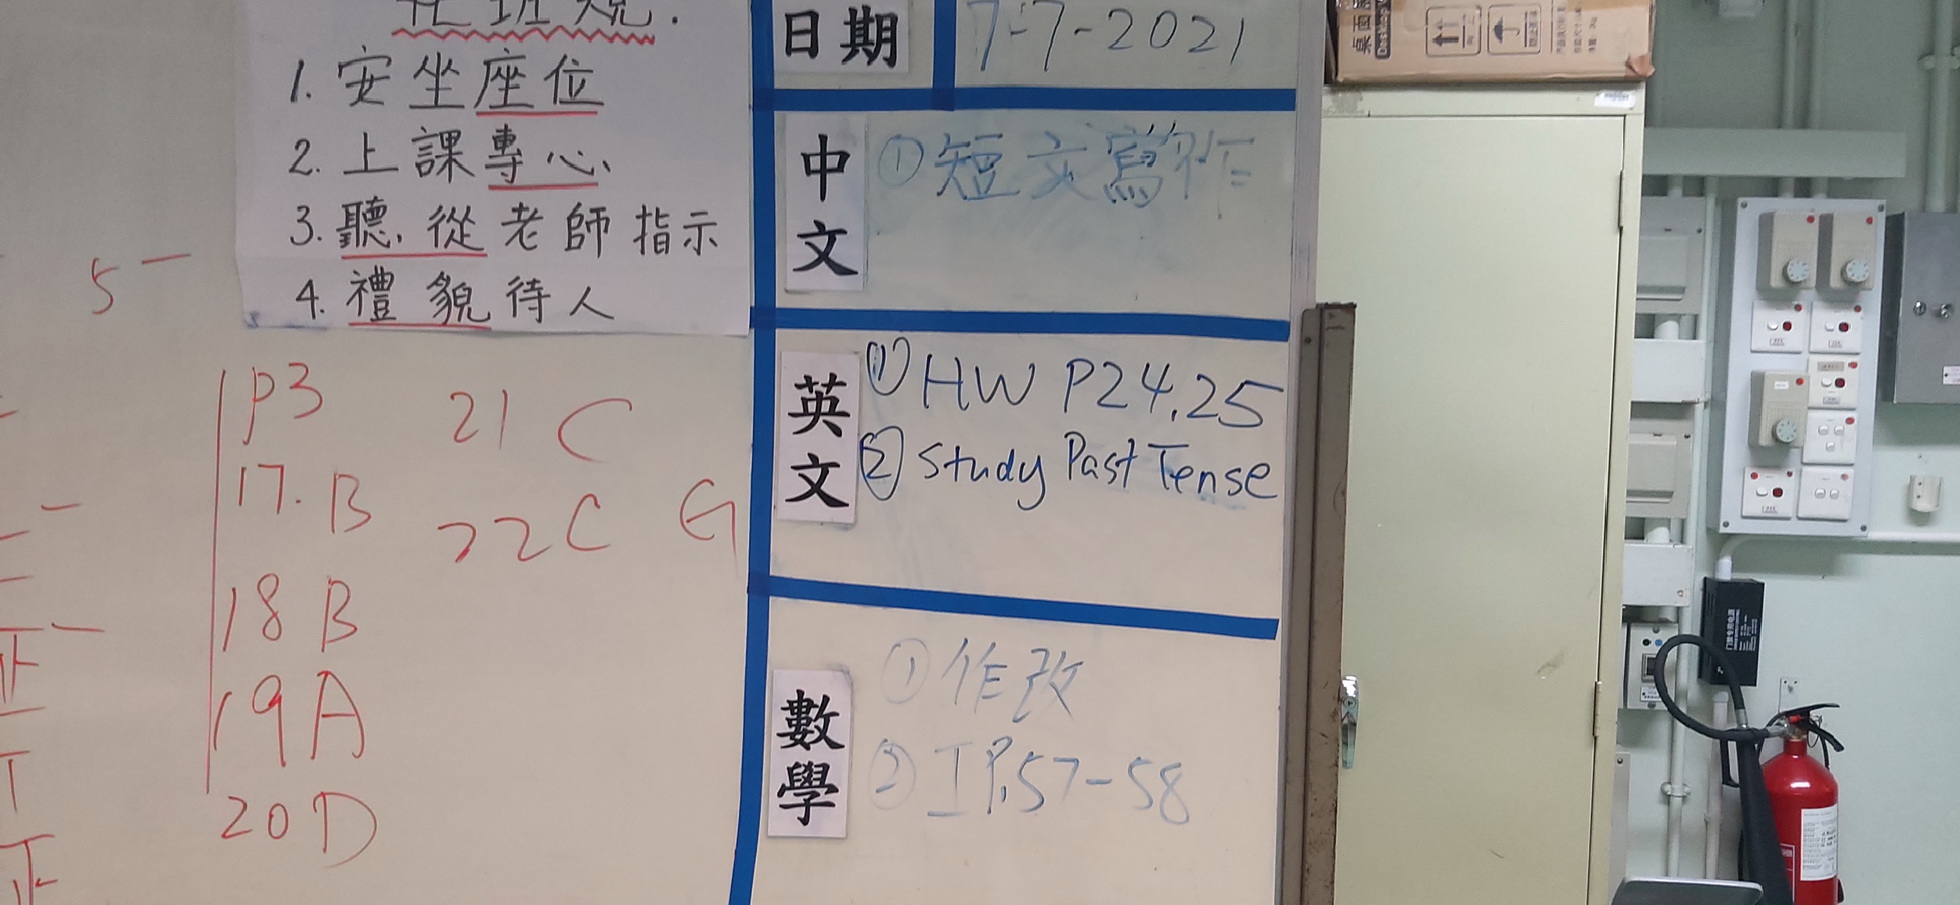 班規.
1. 安坐座位
2. 上課專心
3. 聽從老師指示
4. 禮貌待人
5
P3
17. B
18 B
19 A
20 D
21 C
22 C
日期
7-7-2021
中文
① 短文寫作
英文
① HW P24,25
② Study Past Tense
數學
① 作改
② 工P.57-58
桌面
Desktop